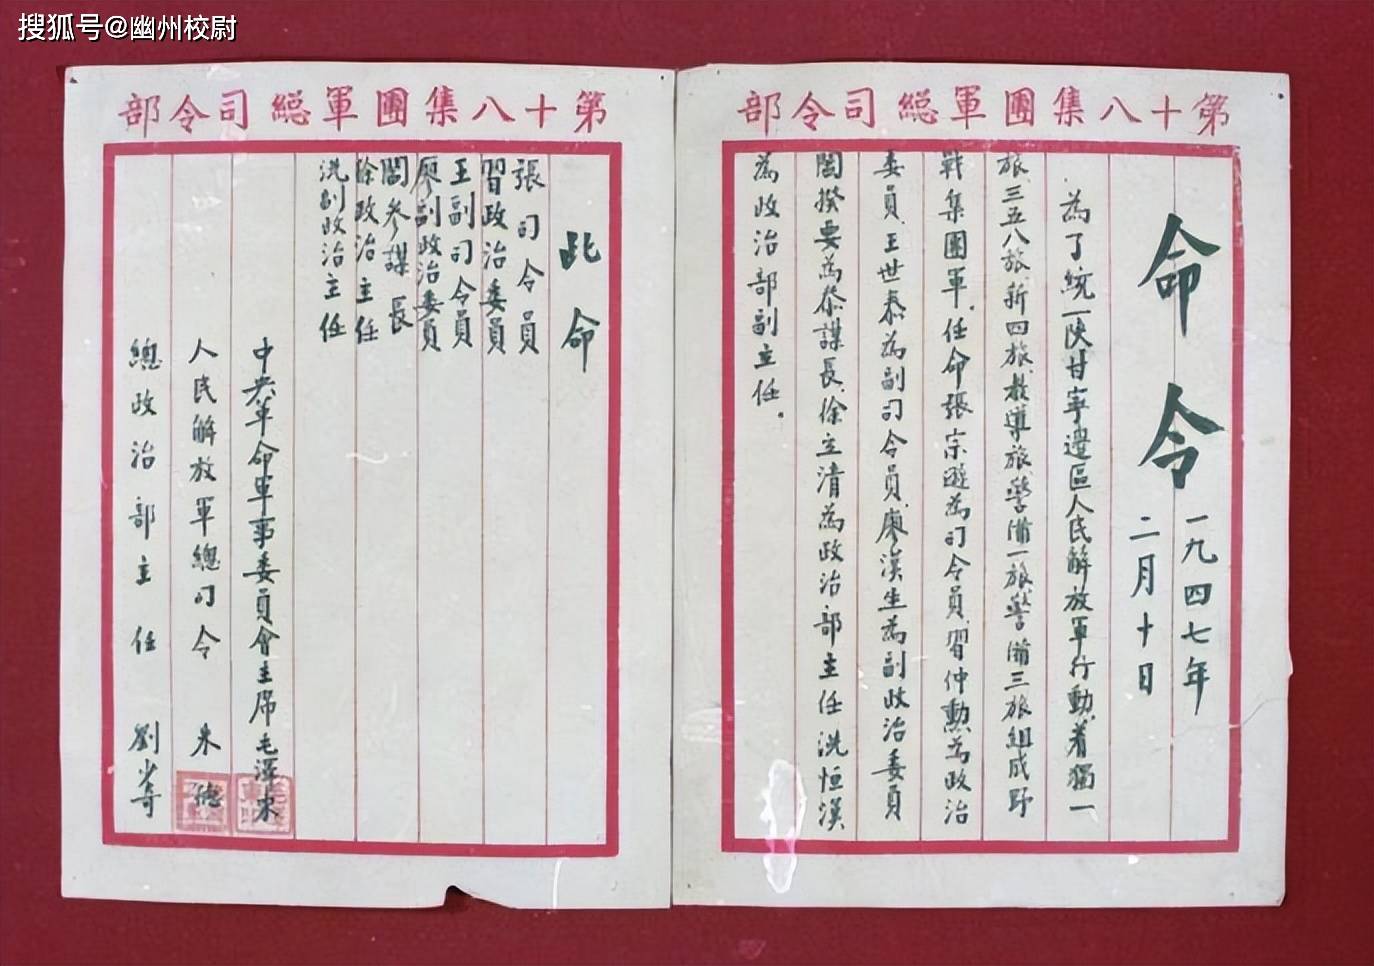 搜狐号@幽州校尉
部令司總軍團集八十第
命令
一九四七年
二月十日
為了統一陝甘寧邊區人民解放軍行動，着獨一
旅、三五八旅、新四旅、教導旅、警備一旅、警備三旅組成野
戰集團軍。任命張宗遜為司令員、習仲勳為政治
委員、王世泰為副司令員、廖漢生為副政治委員
閻揆要為叅謀長、徐立清為政治部主任冼恒漢
為政治部副主任。
部令司總軍團集八十第
此命
張司令員
習政治委員
王副司令員
廖副政治委員
閻参謀長
徐政治主任
冼副政治主任
中央革命軍事委員會主席毛澤東
人民解放軍總司令 朱德
總政治部主任 劉少奇